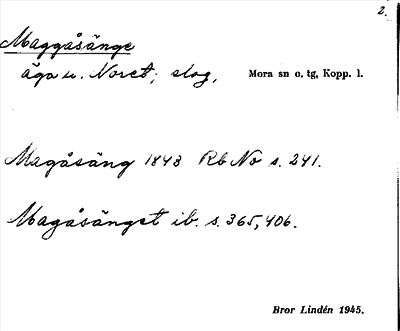 2.
Maggåsänge
äga u. Noret; slog, Mora sn o. tg, Kopp. l.
Magåsäng 1843 Rb No s. 241.
Magåsänget ib. s. 365, 406.
Bror Lindén 1945.